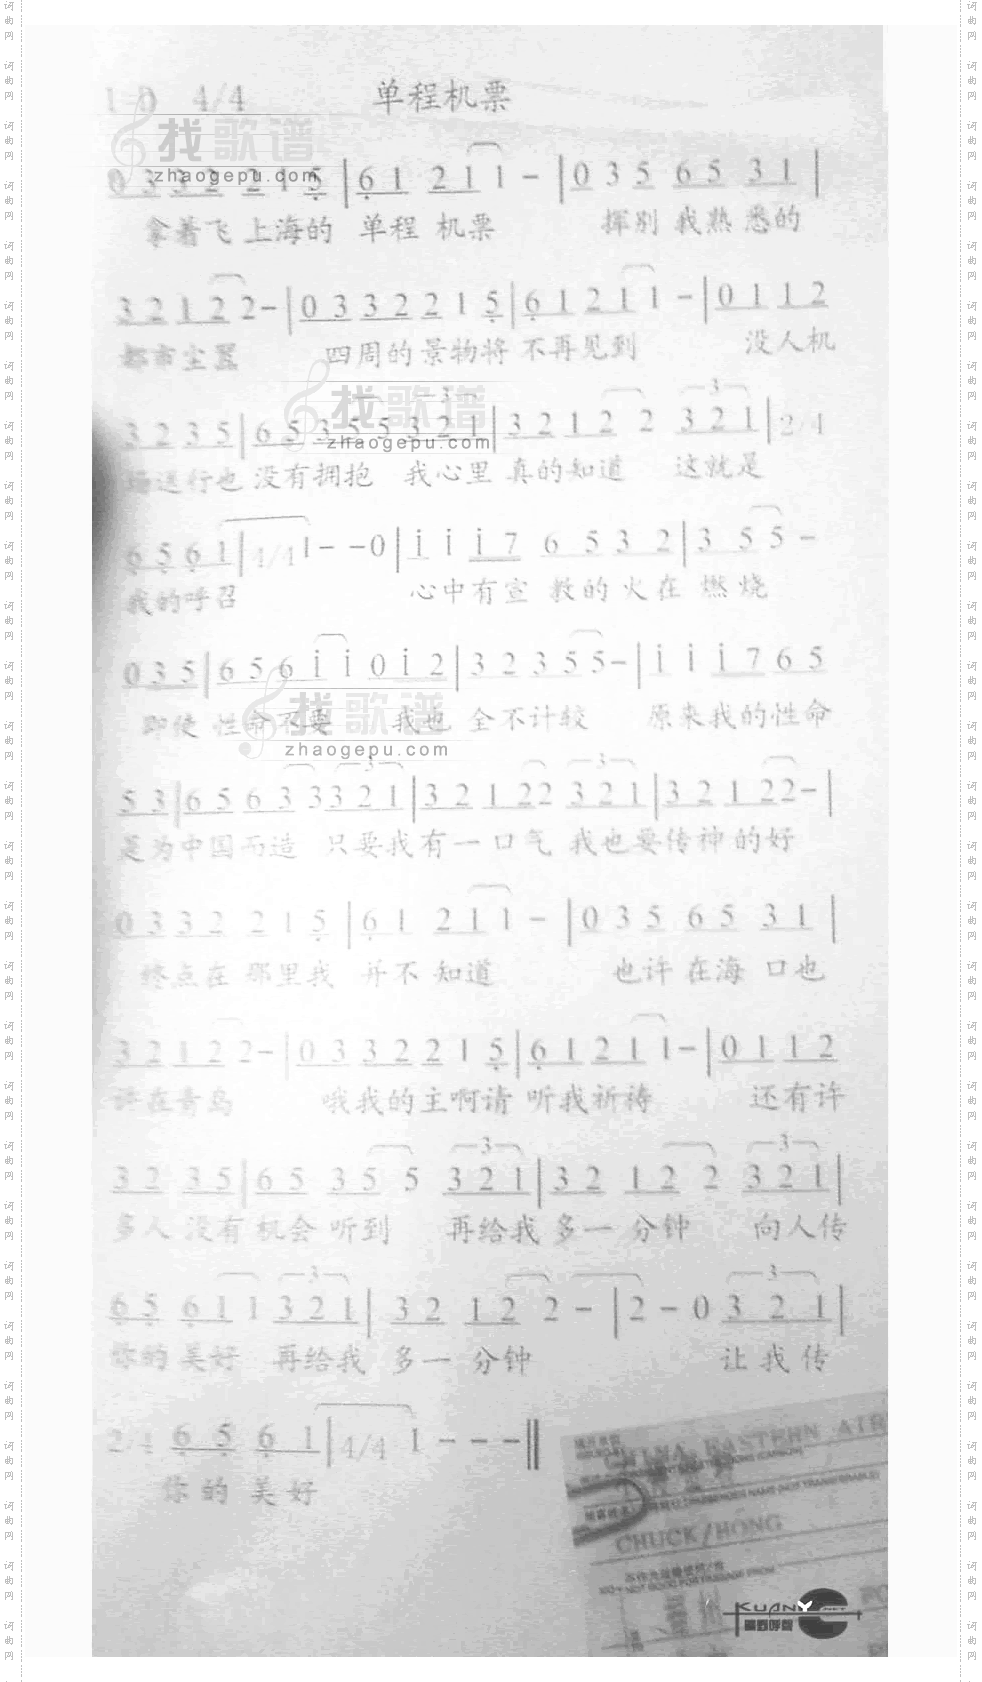 1=D 4/4 单程机票
0 3 3 2 2 1 5 | 6 1 2 1 1 - | 0 3 5 6 5 3 1 |
拿着飞 上海的 单程 机票 挥别 我熟 悉的
3 2 1 2 2 - | 0 3 3 2 2 1 5 | 6 1 2 1 1 - | 0 1 1 2
都市尘嚣 四周的景物将 不再见到 没人机
3 2 3 5 | 6 5 3 5 5 3 2 1 | 3 2 1 2 2 3 2 1 | 2/4
场送行也 没有拥抱 我心里 真的知道 这就是
6 5 6 1 | 4/4 1 - - 0 | i i i 7 6 5 3 2 | 3 5 5 -
我的呼召 心中有宣 教的火在 燃烧
0 3 5 | 6 5 6 i i 0 i 2 | 3 2 3 5 5 - | i i i 7 6 5
即使 性命不要 我也 全不计较 原来我的性命
5 3 | 6 5 6 3 3 3 2 1 | 3 2 1 2 2 3 2 1 | 3 2 1 2 2 - |
是为中国而造 只要我有一口气 我也要传神的好
0 3 3 2 2 1 5 | 6 1 2 1 1 - | 0 3 5 6 5 3 1 |
终点在 那里我 并不 知道 也许 在海 口也
3 2 1 2 2 - | 0 3 3 2 2 1 5 | 6 1 2 1 1 - | 0 1 1 2
许在青岛 哦我的主啊请 听我祈祷 还有许
3 2 3 5 | 6 5 3 5 5 3 2 1 | 3 2 1 2 2 3 2 1 |
多人 没有 机会 听到 再给我 多一 分钟 向人传
6 5 6 1 1 3 2 1 | 3 2 1 2 2 - | 2 - 0 3 2 1 |
你的 美好 再给我 多一 分钟 让我传
2/4 6 5 6 1 | 4/4 1 - - -
你的 美好
CHINA EASTERN AIR
CHUCK/HONG
KUANY
旷野呼声
找歌谱
zhaogepu.com
找歌谱
zhaogepu.com
找歌谱
zhaogepu.com